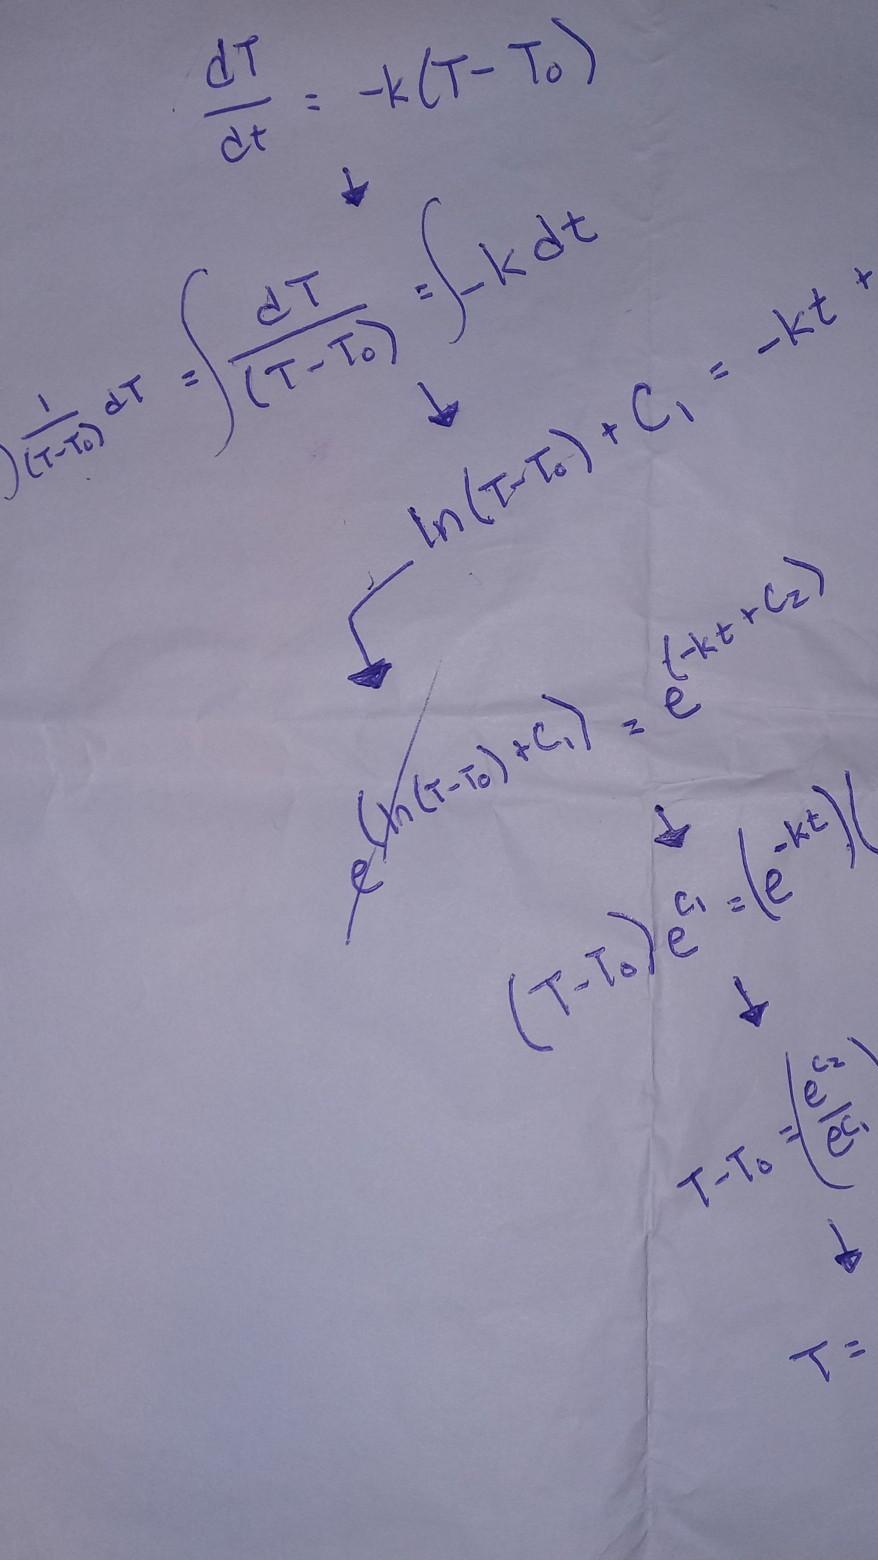 dT/dt = -k(T-T₀)
↓
∫ 1/(T-T₀) dT = ∫ dT/(T-T₀) = ∫ -k dt
↓
ln(T-T₀) + C₁ = -kt +
e^(ln(T-T₀)+C₁) = e^(-kt+C₂)
↓
(T-T₀)e^C₁ = (e^-kt)(
↓
T-T₀ = (e^C₂/e^C₁)
↓
T =